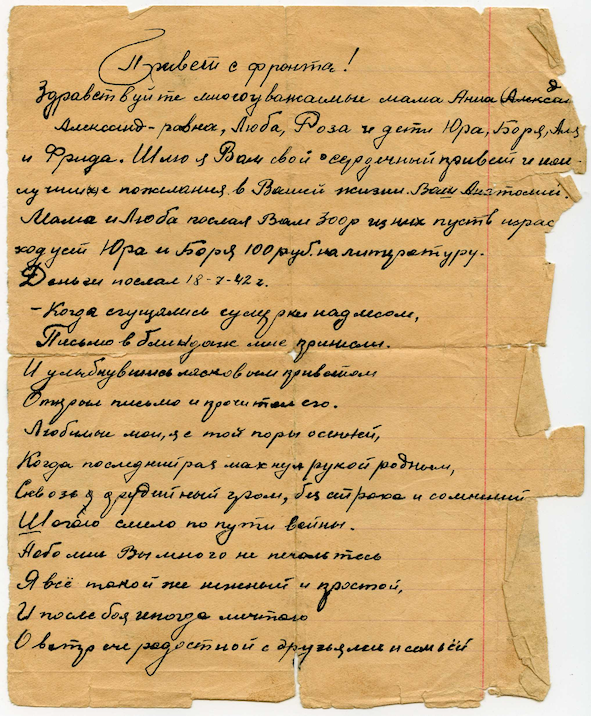 Привет с фронта!
Здравствуйте многоуважаемые мама Анна
Александ-ровна, Люба, Роза и дети Юра, Боря, Аля
и Фрида. Шлю я Вам свой сердечный привет и наи-
лучшие пожелания в Вашей жизни. Ваш Анатолий.
Мама и Люба послал Вам 300р из них пусть израс
ходует Юра и Боря 100 руб. на литературу.
Деньги послал 18-7-42 г.
-Когда сгущались сумерки над лесом,
Письмо в блиндаж мне принесли.
И улыбнувшись ласковым приветом
Открыл письмо и прочитал его.
Любимые мои, я с той поры осенней,
Когда последний раз махнул рукой родным,
Сквозь орудийный гром, без страха и сомнений
Шагаю смело по пути войны.
Обо мне Вы много не печальтесь
Я всё такой же нежный и простой,
И после боя иногда мечтаю
О встрече радостной с друзьями и семьёй